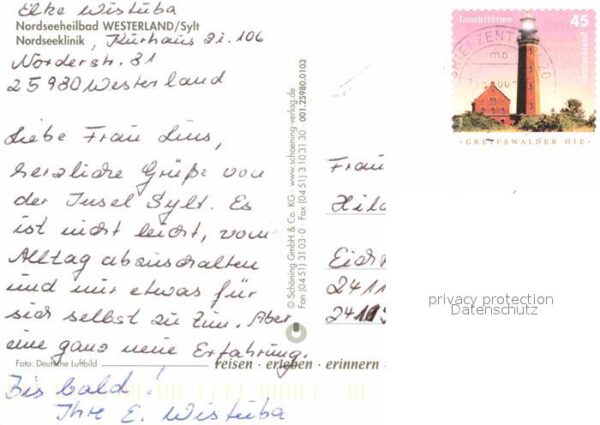 Elke Wistuba
Nordseeheilbad WESTERLAND/Sylt
Nordseeklinik, Kurhaus Zi. 106
Norderstr. 81
25980 Westerland
Liebe Frau Lins,
herzliche Grüße von
der Insel Sylt. Es
ist nicht leicht, vom
Alltag abzuschalten
und nur etwas für
sich selbst zu tun. Aber
eine ganz neue Erfahrung.
Foto: Deutsche Luftbild
Bis bald!
Ihre E. Wistuba
© Schöning GmbH & Co. KG · www.schoening-verlag.de
Fon (04 51) 31 03-0 · Fax (04 51) 3 10 31 30 · 001.25980.0103
reisen · erleben · erinnern
Leuchttürme 45
Deutschland
BRIEFZENTRUM
GREIFSWALDER OIE
Frau
Hild
Eich
2411
2411
privacy protection
Datenschutz